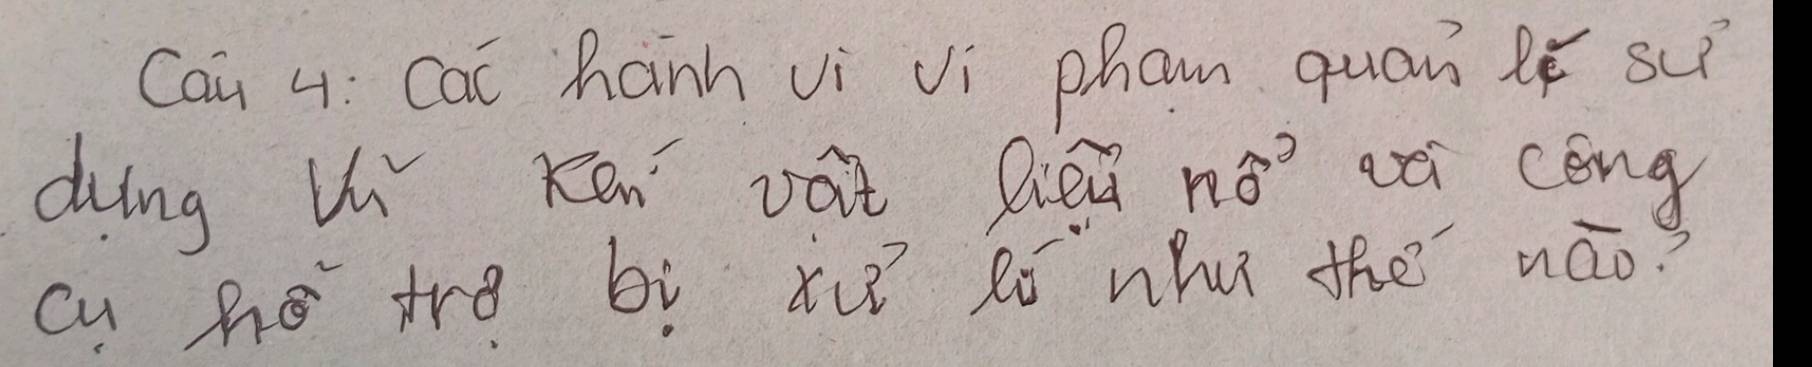 Câu 4: Các hành vi vi phạm quản lí sử
dụng vũ kén vật liệu nổ và công
cụ hỗ trợ bị xử lí như thế nào?